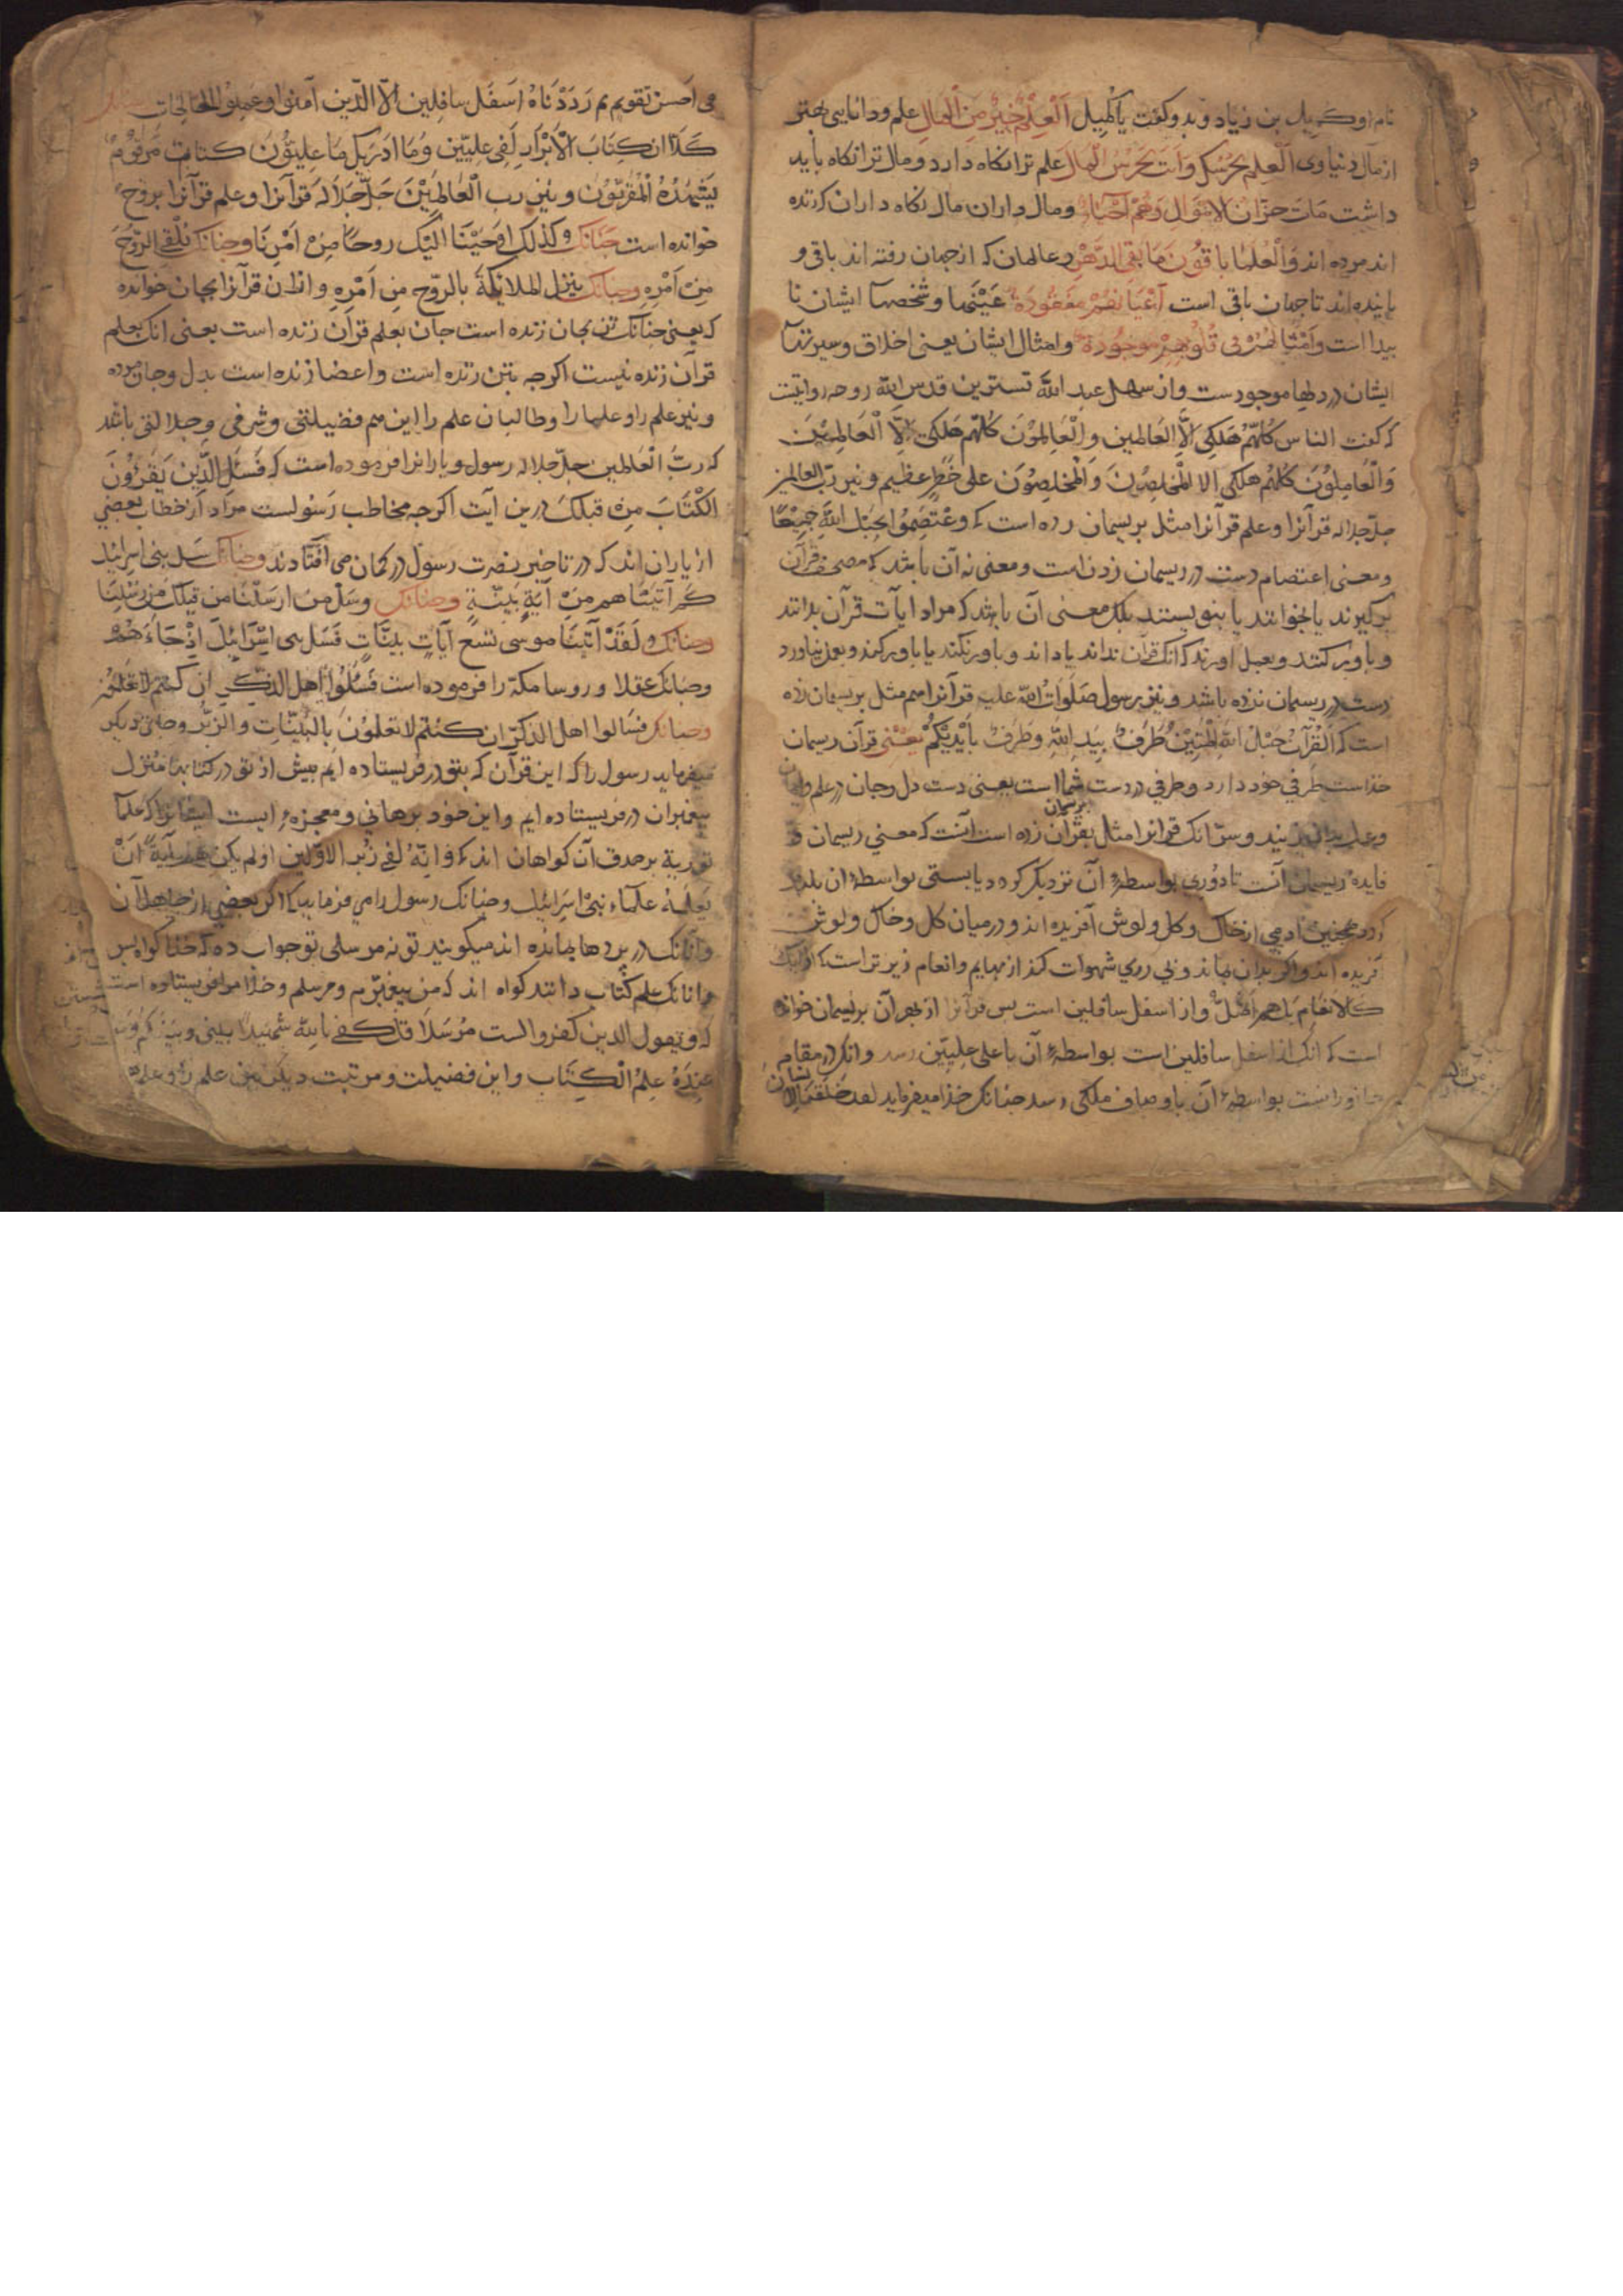 نام او کمیل بن زیاد وبدو کفت یا کمیل اَلْعِلْمُ خَیْرٌ مِنَ الْمَالِ علم و دانایی بهتر
از مال دنیاوی اَلْعِلم یَحْرُسُکَ وَاَنتَ تَحْرُسُ الْمَالَ علم ترا نکاه دارد و مال ترا نکاه باید
داشت مَاتَ خزّان الاموَالِ وَهُمْ اَحْیَاءٌ ومال داران مال نکاه داران که زنده
اند مرده اند وَالْعُلَمَا باقُونَ مَا بَقِیَ الدَّهْرُ وعالمان که از جهان رفته اند باقی و
باینده اند تا جهان باقی است اَعْیَانُهُمْ مَفقُودَةٌ عَیْنها و شخصها ایشان نا
بیدا است وَاَمْثَالُهُمْ فی قُلُوبِهِمْ مَوجُودَةٌ وامثال ایشان یعنی اخلاق وسیرتها
ایشان در دلها موجودست واز سهل عبد اللّه تستری قدس اللّه روحه روایتست
که کفت الناس کُلهُّمْ هَلْکِی اِلاَّ العَالمین والْعَالِموُنَ کُلهُّم هَلکی اِلاّ الْعَامِلِیْنَ
وَالْعَامِلُوْنَ کُلهُم هَلکی الا الْمخلِصِیْنَ وَالْمُخلِصِوُنَ علی خَطَرٍ عظیم ونیز ربّ العالمین
جلّ جلاله قرآنرا وعلم قرآنرا مثل بریسمان زده است که وَعْتَصِمُوا بحَبْلِ اللّهِ جَمِیْعًا
ومعنی اعتصام دست در ریسمان زدن است ومعنی نه آن باشد که مصحف قرآن
برکیرند یا بخوانند یا بنویستند بلکه معنی آن باشد که مراد ایات قرآن بدانند
وباور کنند وبعمل اورند که انک قرآن نداند یا داند وباور نکند یا باور کند وبعمل نیاورد
دست در ریسمان نزده باشد ونیز رسول صَلَواتُ اللّه علیه قرآنرا هم مثل بریسمان زده
است که اَلْقُرآنُ حَبْلُ اللّهِ الْمَتِیْنُ طَرَفٌ بِیَدِ اللّهِ وَطَرَفٌ بأَیْدِیْکُمْ یعنی قرآن ریسمان
خذاست طرفی خود دارد وطرفی در دست شما است یعنی دست دل وجان در علم وایمان
وعمل بدان زنید وسرّ انک قرآنرا مثل بریسمان زده است آنست که معنی ریسمان و
فایده ریسمان آنست تا دوری بواسطهٔ آن نزدیک کردد یا بستی بواسطهٔ ان بلند
کردد همچنین ادمی از خاک وکل ولوش آفریده اند ودرمیان کل وخاک ولوش
آفریده اند واکر بدان بماند وبی روی شهوات کند از بهایم وانعام زیرتر است که اولیک
کالاَنعَام بَل هم اَضَلُّ واز اسفل سافلین است بس قرآنرا از بهر آن بریسمان خوانده
است که انک از اسفل سافلین است بواسطهٔ آن باعلی علیّین رسد وانک در مقام
جانورانست بواسطهٔ آن باوصاف ملکی رسد جنانک خذا میفرماید لقد خلقنا الانسان
فی اَحسن تقویم ثم رَدَدْنَاهُ اَسفَل سافِلِین الاّ الّذین آمنوا وعَمِلوا الصالحات
کَلّا ان کتَابَ الْاَبْرَارِ لَفِی علِیّین وَمَا ادْرَیکَ مَا عِلیّوُنَ کتاب مَرقوُمٌ
یَشهَدُهُ المُقَرّبُونَ ونیز رب الْعَالمِیْنَ جَلّ جَلاَلهُ قرآنرا وعلم قرآنرا بروح
خوانده است جنَانک وکَذلِکَ اَوحَیْنَا الَیْکَ روحًا مِنْ اَمْرِنَا وجنانک یلقی الرّوُحَ
مِنْ اَمْرِهِ وجنانک ینزل الملائکةَ بالرّوحِ مِن اَمْرهِ وازان قرآنرا بجان خوانده
که یعنی جنانک تن بجان زنده است جان بعلم قرآن زنده است یعنی انک بعلم
قرآن زنده نیست اکرجه بتن زنده است واعضا زنده است بدل وجان مرده
ونیز علم را وعلما را وطالبان علم را این هم فضیلتی وشرفی وجلالتی باشد
که ربّ الْعَالمین جلّ جلاله رسول ویارانرا فرموده است که فَسَئَل الّذِیْنَ یَقرَؤُنَ
الکتَابَ مِنْ قَبلکَ درین آیت اکرجه مخاطب رَسُولست مراد از خطاب بعضی
از یاران اند که در تاخیر نصرت رسول در کمان می افتادند وجنانک سَل بنی اسرائیل
کَمْ آتَیْنَاهم مِنْ آیَةٍ بَیّنَةٍ وجنانک وسَئل مَنْ ارسَلْنَا مِن قَبلِکَ مِن رُسُلِنَا
وجنانک ولَقَدْ آتَیْنَا موسی تسْعَ آیَاتٍ بیّنَاتٍ فَسَل بنی اِسْرَائِیْلَ اِذْ جَاءَهُمْ
وجنانک عقلا وروسا مکّه را فرموده است فَسْئَلُوْا اَهل الذّکْرِ ان کنتم لاتعْلَمُوْن
وجنانک فسَالوا اهل الذکر ان کنتُم لاتعلموُنَ بِالبَیّنَاتِ والزُبُر وجایی دیکر
میفرماید رسول را که این قرآن که بتو فریستاده ایم بیش از تو در کتابها منزل
بیغمبران فریستاده ایم واین خود برهانی ومعجزهٔ ایست ایشانرا که علما
توریة بر صدق آن کواهان اند که وَاِنّهُ لَفِی زُبُر الاوّلین اولم یکن لهم آیَةً اَنْ
یَعلَمَهُ علَماءُ بَنِیْ اسَرائِیل وجنانک رسول را می فرماید که اکر بعضی از جاهلان
وآنانک در بردها بمانده اند میکویند تو نه مرسلی تو جواب ده که خدا کواه بس
وانانک علم کتاب دانند کواه اند که من بیغمبرم ومرسلم وخذا مرا فریستاده است
که وَیَقول الذین کفَروا لست مُرْسَلاً قل کَفی باللّه شَهیدًا بینی وبَیْنَکُم وَمَن
عِنْدَهُ عِلمُ الْکِتَاب واین فضیلت ومرتبت دیکر بین علم را وعلما